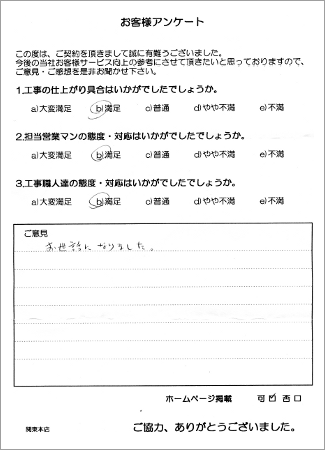 お客様アンケート
この度は、ご契約を頂きまして誠に有難うございました。
今後の当社お客様サービス向上の参考にさせて頂きたいと思っておりますので、
ご意見・ご感想を是非お聞かせ下さい。
1.工事の仕上がり具合はいかがでしたでしょうか。
a)大変満足 b)満足 c)普通 d)やや不満 e)不満
2.担当営業マンの態度・対応はいかがでしたでしょうか。
a)大変満足 b)満足 c)普通 d)やや不満 e)不満
3.工事職人達の態度・対応はいかがでしたでしょうか。
a)大変満足 b)満足 c)普通 d)やや不満 e)不満
ご意見
お世話になりました。
ホームページ掲載 可 ☑ 否 □
関東本店 ご協力、ありがとうございました。